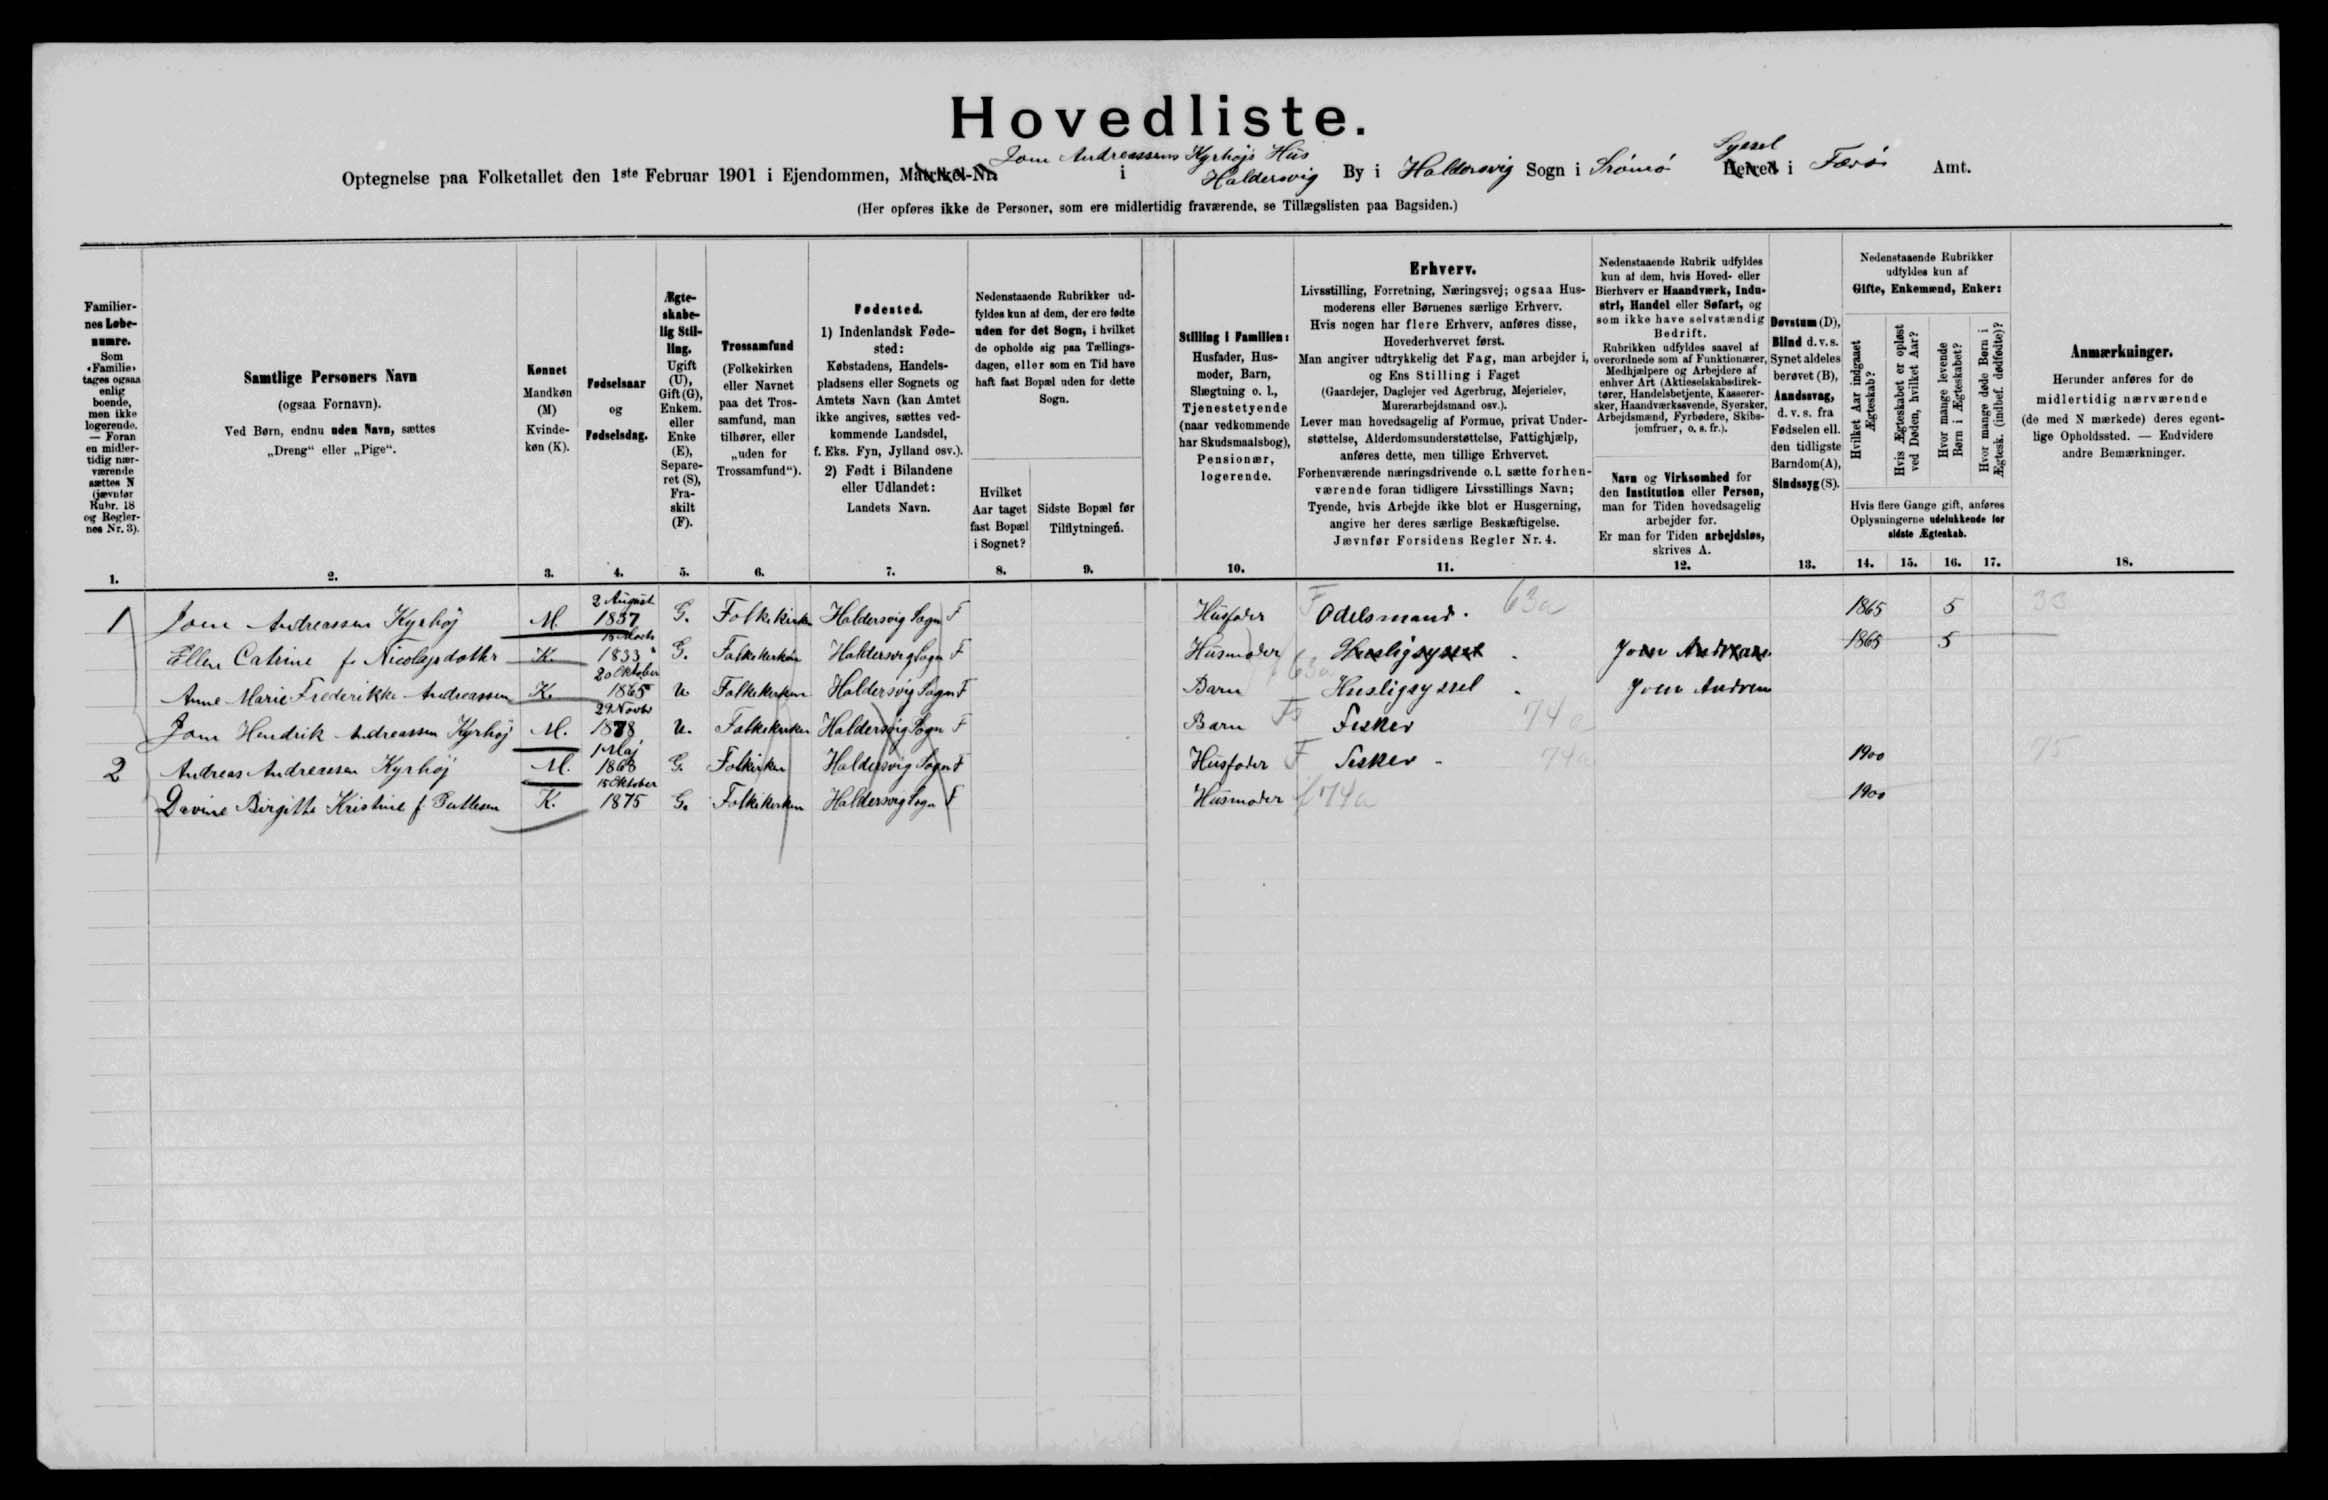 Hovedliste.
Joen Andreassens Kyrhøjs Hus
Syssel
Optegnelse paa Folketallet den 1ste Februar 1901 i Ejendommen, Matrikel-Nr. i Haldersvig By i Haldersvig Sogn i Strømø Herred i Færø Amt.
(Her opføres ikke de Personer, som ere midlertidig fraværende, se Tillægslisten paa Bagsiden.)
Familiernes Løbenumre.
Som «Familie» tages ogsaa enlig boende, men ikke logerende. — Foran en midlertidig nærværende sættes N (jævnfør Rubr. 18 og Reglernes Nr. 3).
1.
Samtlige Personers Navn
(ogsaa Fornavn).
Ved Børn, endnu uden Navn, sættes
„Dreng“ eller „Pige“.
2.
Kønnet
Mandkøn
(M)
Kvinde-
køn (K).
3.
Fødselsaar
og
Fødselsdag.
4.
Ægte-
skabe-
lig Stil-
ling.
Ugift
(U),
Gift (G),
Enkem.
eller
Enke
(E),
Separe-
ret (S),
Fra-
skilt
(F).
5.
Trossamfund
(Folkekirken
eller Navnet
paa det Tros-
samfund, man
tilhører, eller
„uden for
Trossamfund“).
6.
Fødested.
1) Indenlandsk Føde-
sted:
Købstadens, Handels-
pladsens eller Sognets og
Amtets Navn (kan Amtet
ikke angives, sættes ved-
kommende Landsdel,
f. Eks. Fyn, Jylland osv.).
2) Født i Bilandene
eller Udlandet:
Landets Navn.
7.
Nedenstaaende Rubrikker ud-
fyldes kun af dem, der ere fødte
uden for det Sogn, i hvilket
de opholde sig paa Tællings-
dagen, eller som en Tid have
haft fast Bopæl uden for dette
Sogn.
Hvilket
Aar taget
fast Bopæl
i Sognet?
8.
Sidste Bopæl før
Tilflytningen.
9.
Stilling i Familien:
Husfader, Hus-
moder, Barn,
Slægtning o. l.,
Tjenestetyende
(naar vedkommende
har Skudsmaalsbog),
Pensionær,
logerende.
10.
Erhverv.
Livsstilling, Forretning, Næringsvej; ogsaa Hus-
moderens eller Børnenes særlige Erhverv.
Hvis nogen har flere Erhverv, anføres disse,
Hovederhvervet først.
Man angiver udtrykkelig det Fag, man arbejder i,
og Ens Stilling i Faget
(Gaardejer, Daglejer ved Agerbrug, Mejerielev,
Murerarbejdsmand osv.).
Lever man hovedsagelig af Formue, privat Under-
støttelse, Alderdomsunderstøttelse, Fattighjælp,
anføres dette, men tillige Erhvervet.
Forhenværende næringsdrivende o. l. sætte forhen-
værende foran tidligere Livsstillings Navn;
Tyende, hvis Arbejde ikke blot er Husgerning,
angive her deres særlige Beskæftigelse.
Jævnfør Forsidens Regler Nr. 4.
11.
Nedenstaaende Rubrik udfyldes
kun af dem, hvis Hoved- eller
Bierhverv er Haandværk, Indu-
stri, Handel eller Søfart, og
som ikke have selvstændig
Bedrift.
Rubrikken udfyldes saavel af
overordnede som af Funktionærer,
Medhjælpere og Arbejdere af
enhver Art (Aktieselskabsdirek-
tører, Handelsbetjente, Kasserer-
sker, Haandværkssvende, Syersker,
Arbejdsmænd, Fyrbødere, Skibs-
jomfruer, o. s. fr.).
Navn og Virksomhed for
den Institution eller Person,
man for Tiden hovedsagelig
arbejder for.
Er man for Tiden arbejdsløs,
skrives A.
12.
Døvstum (D),
Blind d. v. s.
Synet aldeles
berøvet (B),
Aandssvag,
d. v. s. fra
Fødselen ell.
den tidligste
Barndom (A),
Sindssyg (S).
13.
Nedenstaaende Rubrikker
udfyldes kun af
Gifte, Enkemænd, Enker:
Hvilket Aar indgaaet Ægteskab?
Hvis Ægteskabet er opløst ved Døden, hvilket Aar?
Hvor mange levende Børn i Ægteskabet?
Hvor mange døde Børn i Ægtesk. (indbef. dødfødte)?
Hvis flere Gange gift, anføres
Oplysningerne udelukkende for
sidste Ægteskab.
14. 15. 16. 17.
Anmærkninger.
Herunder anføres for de
midlertidig nærværende
(de med N mærkede) deres egent-
lige Opholdssted. — Endvidere
andre Bemærkninger.
18.
1 Joen Andreassen Kyrhøj M. 2 August 1837 G. Folkekirken Haldersvig Sogn F Husfader F Odelsmand. 63a 1865 5 33
Ellen Catrine f. Nicolajsdatter K. 1833 G. Folkekirken Haldersvig Sogn F Husmoder Husligsyssel Joen Andreas 1865 5
Anne Marie Frederikke Andreassen K. 20 Oktober 1865 U. Folkekirken Haldersvig Sogn F Barn f 63a Husligsyssel Joen Andreas
Joen Hendrik Andreassen Kyrhøj M. 29 Novbr 1878 U. Folkekirken Haldersvig Sogn F Barn Fisker 74a
2 Andreas Andreassen Kyrhøj M. 1 Maj 1868 G. Folkirken Haldersvig Sogn F Husfader F Fisker 74a 1900 75
Davine Birgitte Kristine f. K. 15 Oktober 1875 G. Folkekirken Haldersvig Sogn F Husmoder f 74a 1900